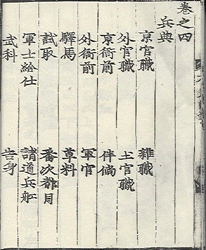 卷之四
兵典
京官職 雜職
外官職 土官職
京衙前 伴倘
外衙前 軍官
驛馬 草料
試取 番次都目
軍士給仕 諸道兵船
武科 告身